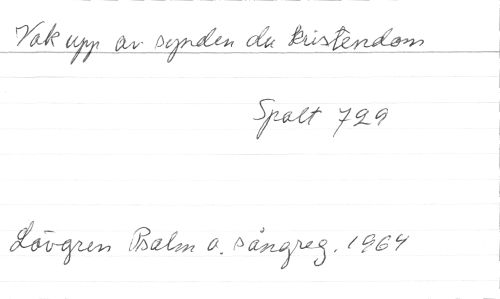 Vak upp av synden du kristendom
Spalt 729
Lövgren Psalm o. sångreg. 1964